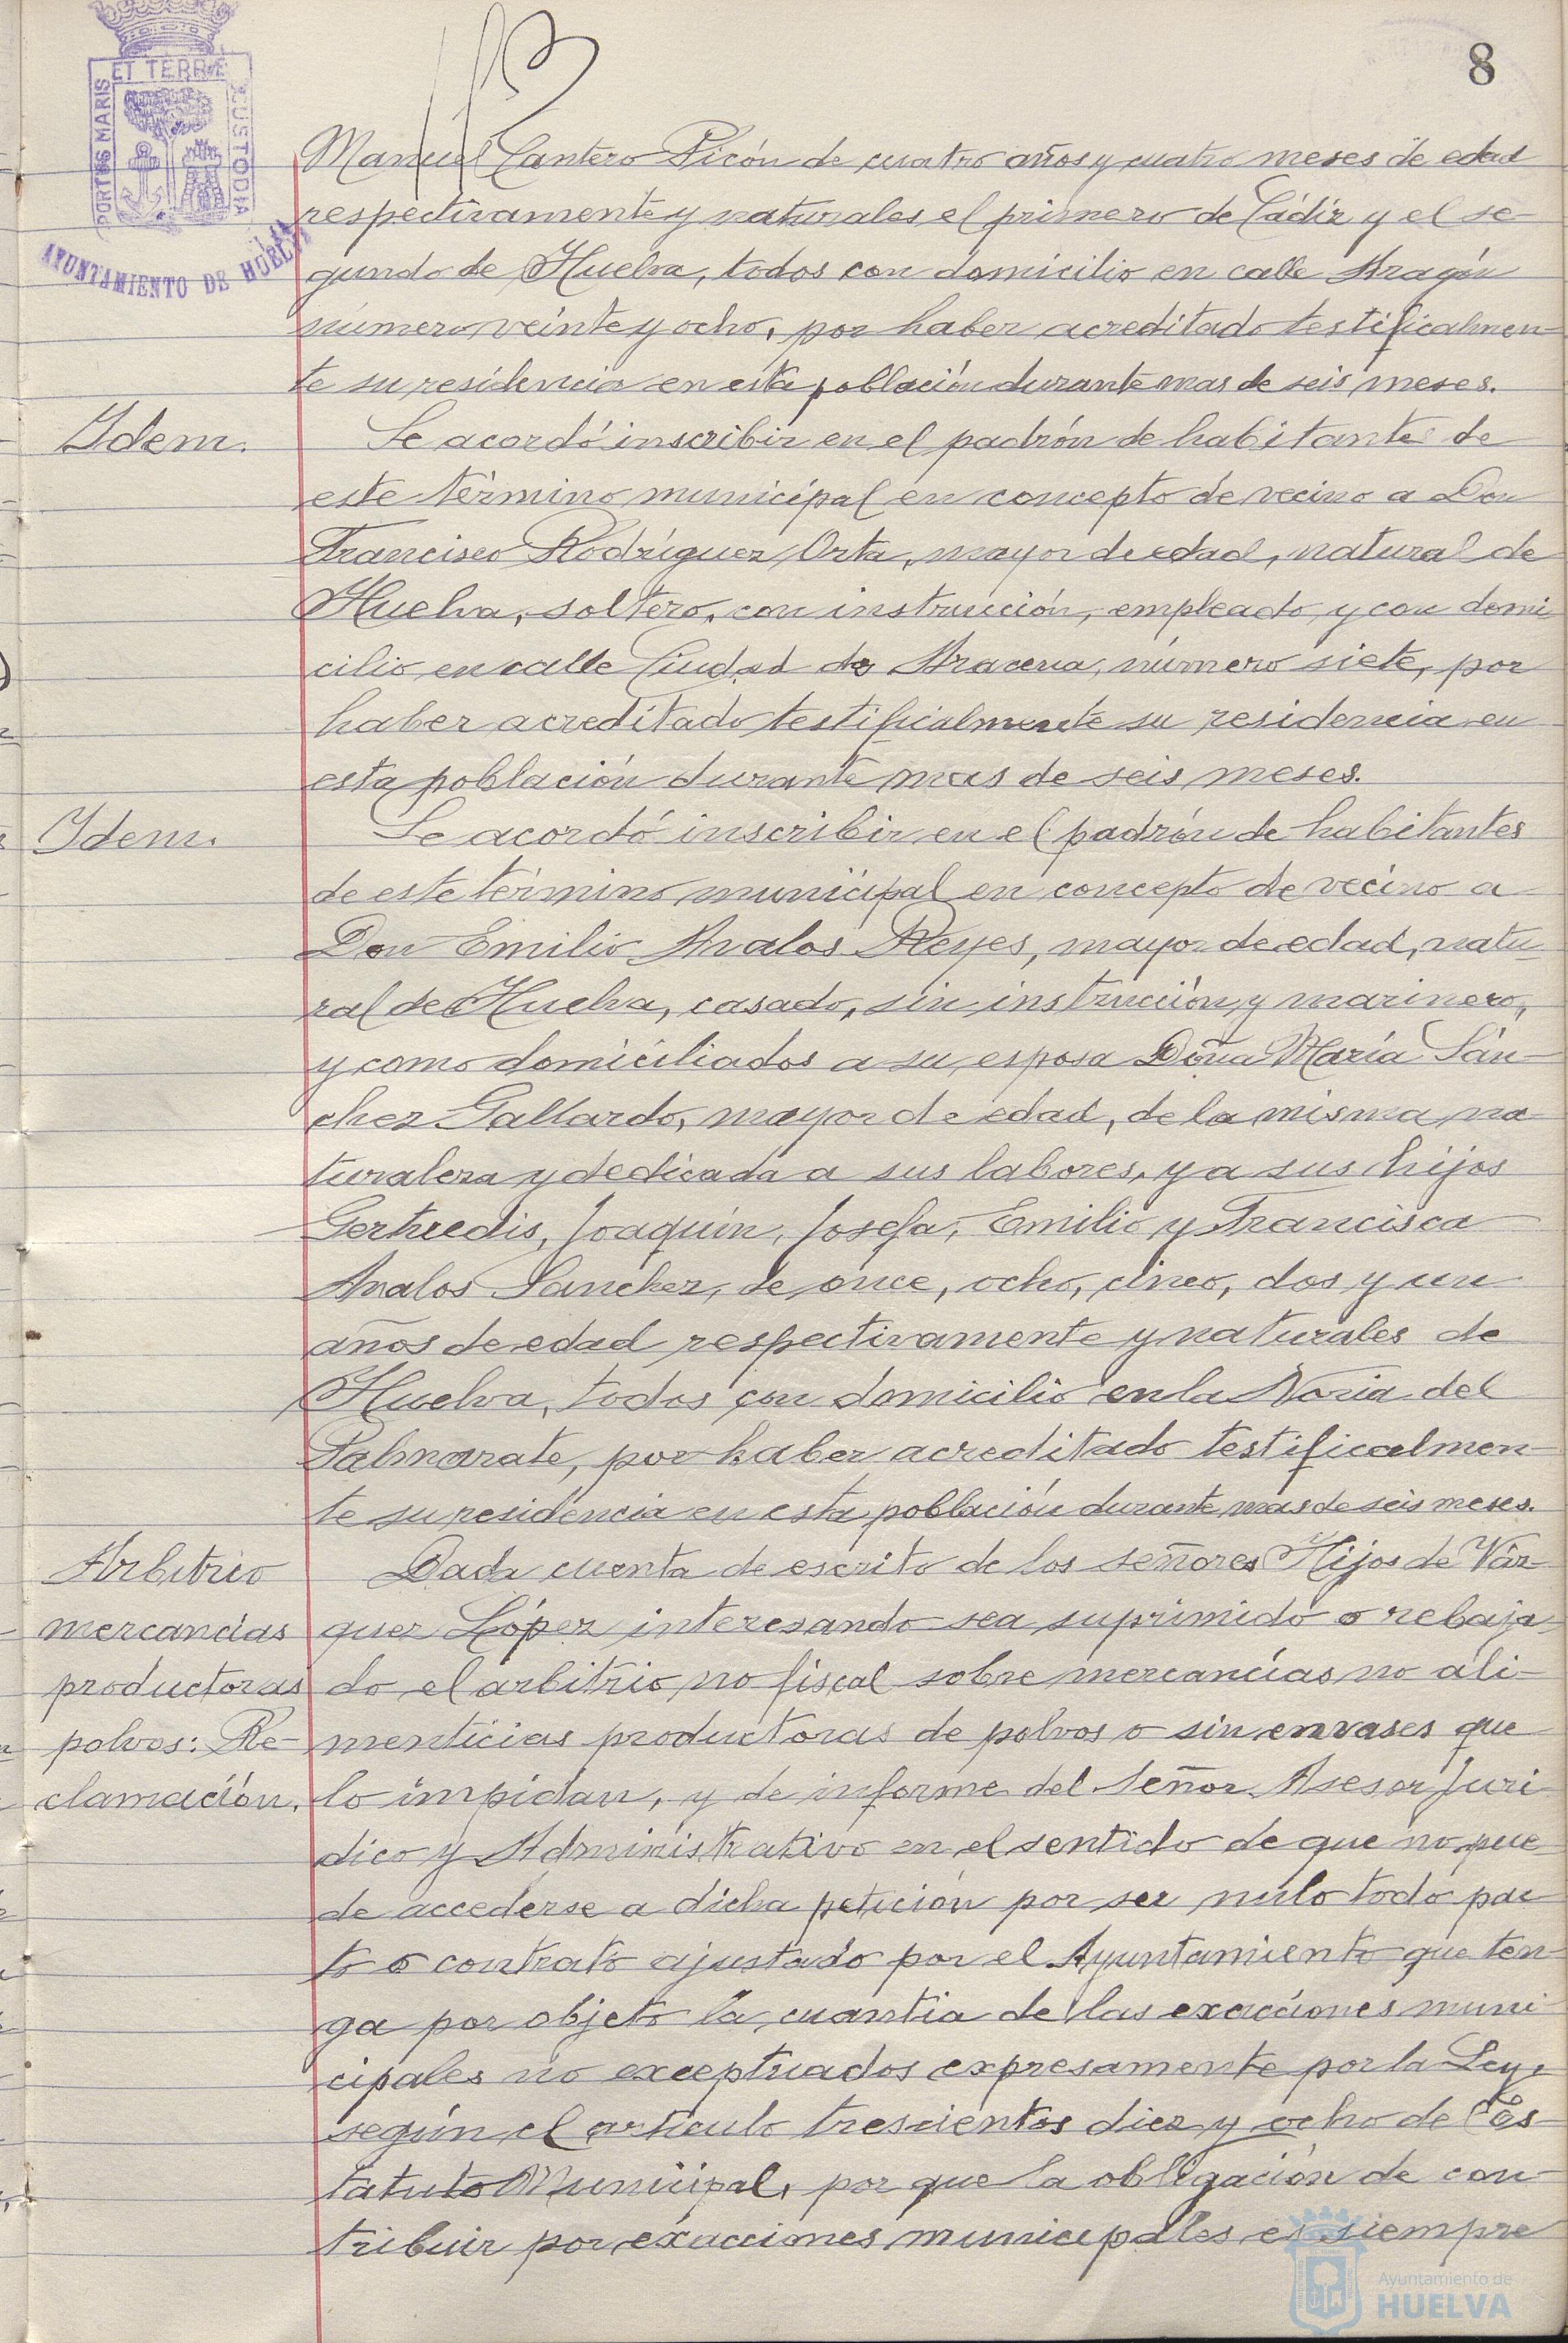 8
PORTUS MARIS
ET TERRÆ
CUSTODIA
AYUNTAMIENTO DE HUELVA
Manuel Cantero Picón de cuatro años y cuatro meses de edad
respectivamente y naturales el primero de Cádiz y el se-
gundo de Huelva, todos con domicilio en calle Aragón
número veinte y ocho, por haber acreditado testificalmen-
te su residencia en esta población durante mas de seis meses.
Idem.
Se acordó inscribir en el padrón de habitantes de
este término municipal en concepto de vecino a Don
Francisco Rodríguez Orta, mayor de edad, natural de
Huelva, soltero, con instrucción, empleado y con domi-
cilio en calle Ciudad de Aracena, número siete, por
haber acreditado testificalmente su residencia en
esta población durante mas de seis meses.
Idem.
Se acordó inscribir en el padrón de habitantes
de este término municipal en concepto de vecino a
Don Emilio Avalos Reyes, mayor de edad, natu-
ral de Huelva, casado, sin instrucción y marinero,
y como domiciliados a su esposa Doña María Sán-
chez Gallardo, mayor de edad, de la misma na
turaleza y dedicada a sus labores, y a sus hijos
Gertrudis, Joaquín, Josefa, Emilio y Francisca
Avalos Sanchez, de once, ocho, cinco, dos y un
años de edad respectivamente y naturales de
Huelva, todos con domicilio en la Noria del
Palmarate, por haber acreditado testificalmen-
te su residencia en esta población durante mas de seis meses.
Arbitrio
mercancías
productoras
polvos: Re-
clamación.
Dada cuenta de escrito de los señores Hijos de Váz-
quez López interesando sea suprimido o rebaja-
do el arbitrio no fiscal sobre mercancías no ali-
menticias productoras de polvos o sin envases que
lo impidan, y de informe del Señor Asesor Juri
dico y Administrativo en el sentido de que no pue
de accederse a dicha petición por ser nulo todo pac
to o contrato ajustado por el Ayuntamiento que ten-
ga por objeto la cuantia de las exacciones muni-
cipales no exceptuados expresamente por la Ley,
según el artículo trescientos diez y ocho del Es-
tatuto Municipal, por que la obligación de con-
tribuir por exacciones municipales es siempre
Ayuntamiento de
HUELVA